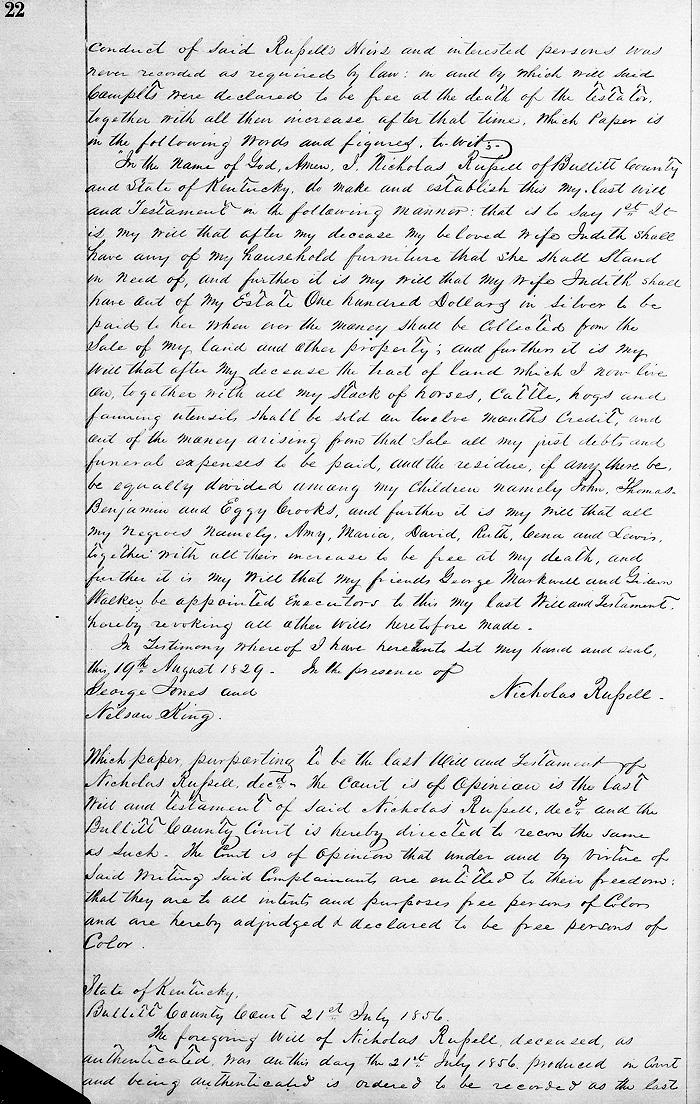 22
conduct of said Russell's Heirs and interested persons was
never recorded as required by law: in and by which will said
Complts were declared to be free at the death of the testator,
together with all their increase after that time. Which Paper is
in the following words and figures, to-wit:-
"In the Name of God, Amen, I, Nicholas Russell of Bullitt County
and State of Kentucky, do make and establish this my last will
and Testament in the following mannor: that is to say 1st It
is my will that after my decease my beloved wife Judith shall
have any of my household furniture that she shall Stand
in need of, and further it is my will that my wife Judith shall
have out of my Estate One hundred Dollars in Silver to be
paid to her when ever the money shall be Collected from the
Sale of my land and other property; and further it is my
will that after my decease the tract of land which I now live
on, together with all my Stock of horses, Cattle, hogs and
farming utensils shall be sold on twelve months Credit, and
out of the money arising from that Sale all my just debts and
funeral expenses to be paid, and the residue, if any there be,
be equally divided among my Children namely John, Thomas-
Benjamin and Eggy Crooks, and further it is my will that all
my negroes namely, Amy, Maria, David, Ruth, Cena and Lewis,
together with all their increase to be free at my death, and
further it is my Will that my friends George Markwell and Gideon
Walker be appointed Executors to this my last Will and Testament.
hereby revoking all other Wills heretofore made.-
In Testimony whereof I have hereunto set my hand and seal,
this 19th August 1829. In the presence of
George Jones and Nicholas Russell.-
Nelson King.
Which paper, purporting to be the last Will and Testament of
Nicholas Russell, decd.- The Court is of Opinion is the last
Will and testament of said Nicholas Russell, decd and the
Bullitt County Court is hereby directed to recon the same
as such. The Court is of opinion that under and by virtue of
said writing said Complainants are entitled to their freedom:
that they are to all intents and purposes free persons of Color
and are hereby adjudged & declared to be free persons of
Color.
State of Kentucky,
Bullitt County Court 21st July 1856.
The foregoing Will of Nicholas Russell, deceased, as
authenticated, was on this day the 21st July 1856, produced in Court
and being authenticated is ordered to be recorded as the last